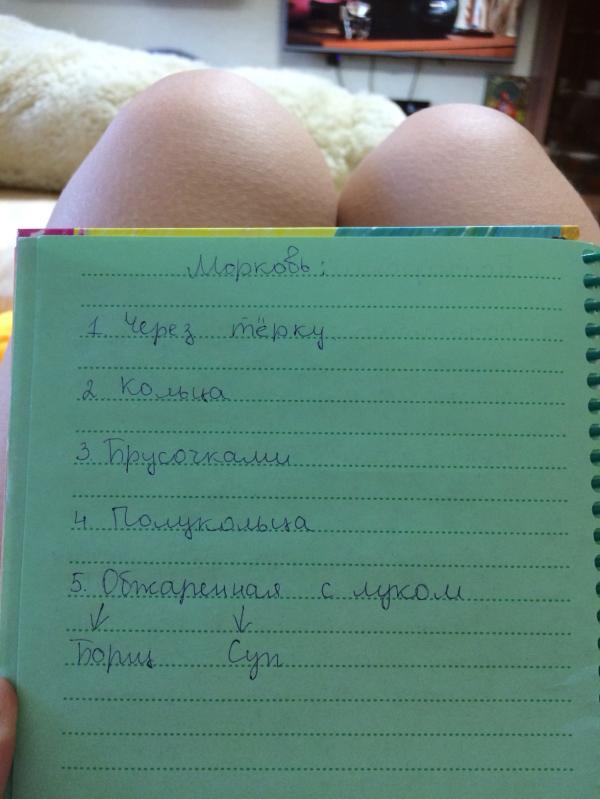 Морковь:
1. Через тёрку
2 Кольца
3 Брусочками
4 Полукольца
5. Обжаренная с луком
↓ ↓
Борщ Суп